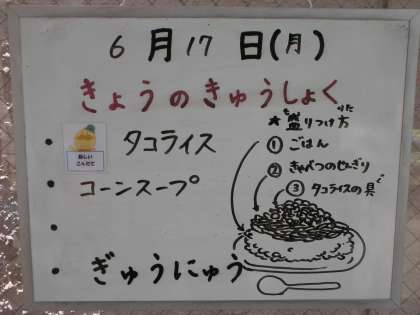 6月17日(月)
きょうのきゅうしょく
★盛りつけ方
かた
新しい
こんだて
・ タコライス
① ごはん
② きゃべつのせんぎり
③ タコライスの具
・ コーンスープ
・
・ ぎゅうにゅう